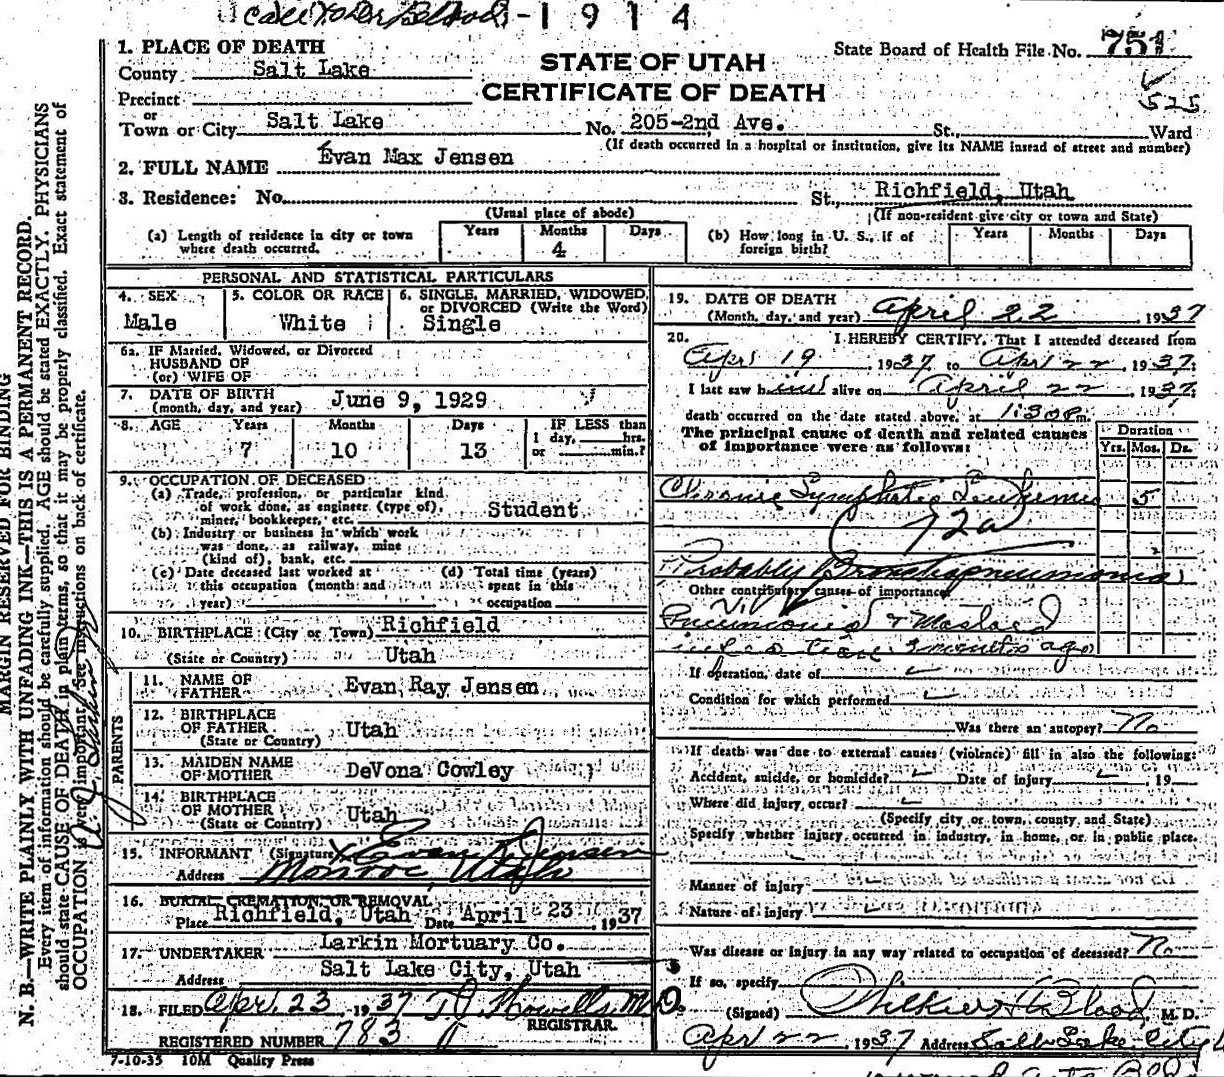 Call to Dr Blood - 1914
1. PLACE OF DEATH
STATE OF UTAH
State Board of Health File No. 751
County Salt Lake
CERTIFICATE OF DEATH
525
Precinct
or
Town or City Salt Lake No. 205-2nd Ave. St., Ward
(If death occurred in a hospital or institution, give its NAME insead of street and number)
2. FULL NAME Evan Max Jensen
3. Residence: No. St., Richfield, Utah
(Usual place of abode) (If non-resident give city or town and State)
(a) Length of residence in city or town where death occurred. Years Months 4 Days
(b) How long in U. S., if of foreign birth? Years Months Days
PERSONAL AND STATISTICAL PARTICULARS
4. SEX Male
5. COLOR OR RACE White
6. SINGLE, MARRIED, WIDOWED, or DIVORCED (Write the Word) Single
6a. IF Married, Widowed, or Divorced
HUSBAND OF
(or) WIFE OF
7. DATE OF BIRTH
(month, day, and year) June 9, 1929
8. AGE Years Months Days IF LESS than
7 10 13 1 day, hrs.
or min.?
9. OCCUPATION OF DECEASED
(a) Trade, profession, or particular kind
of work done, as engineer (type of), Student
miner, bookkeeper, etc.
(b) Industry or business in which work
was done, as railway, mine
(kind of), bank, etc.
(c) Date deceased last worked at
this occupation (month and
year)
(d) Total time (years)
spent in this
occupation
10. BIRTHPLACE (City or Town) Richfield
(State or Country) Utah
PARENTS
11. NAME OF
FATHER Evan Ray Jensen
12. BIRTHPLACE
OF FATHER Utah
(State or Country)
13. MAIDEN NAME
OF MOTHER DeVona Cowley
14. BIRTHPLACE
OF MOTHER Utah
(State or Country)
15. INFORMANT (Signature) Evan R Jensen
Address Monroe, Utah
16. BURIAL, CREMATION, OR REMOVAL,
Place Richfield, Utah Date April 23 1937
17. UNDERTAKER Larkin Mortuary Co.
Address Salt Lake City, Utah
18. FILED Apr. 23, 1937 T J Howells M.D.
REGISTRAR.
REGISTERED NUMBER 783
7-10-35 10M Quality Press
19. DATE OF DEATH
(Month, day, and year) April 22, 1937
20. I HEREBY CERTIFY, That I attended deceased from
Apr 19 1937, to Apr 22, 1937;
I last saw him alive on April 22, 1937;
death occurred on the date stated above, at 1:30 P.m.
The principal cause of death and related causes
of Importance were as follows:
Duration
Yrs. Mos. Ds.
Chronic Lymphatic Leukemia 5
72a
Probably Bronchopneumonia
Other contributory causes of importance
Pneumonia & Mastoid
infection 3 months ago
If operation, date of
Condition for which performed
Was there an autopsy? No
If death was due to external causes (violence) fill in also the following:
Accident, suicide, or homicide? Date of injury 19
Where did injury occur?
(Specify city or town, county, and State)
Specify whether injury occurred in industry, in home, or in public place.
Manner of injury
Nature of injury
Was disease or injury in any way related to occupation of deceased? No
If so, specify
(Signed) Wilkie H Blood, M. D.
Apr 22, 1937 Address Salt Lake City U
MARGIN RESERVED FOR BINDING
N. B.—WRITE PLAINLY WITH UNFADING INK—THIS IS A PERMANENT RECORD.
Every item of information should be carefully supplied. AGE should be stated EXACTLY. PHYSICIANS
should state CAUSE OF DEATH in plain terms, so that it may be properly classified. Exact statement of
OCCUPATION is very important. See instructions on back of certificate.